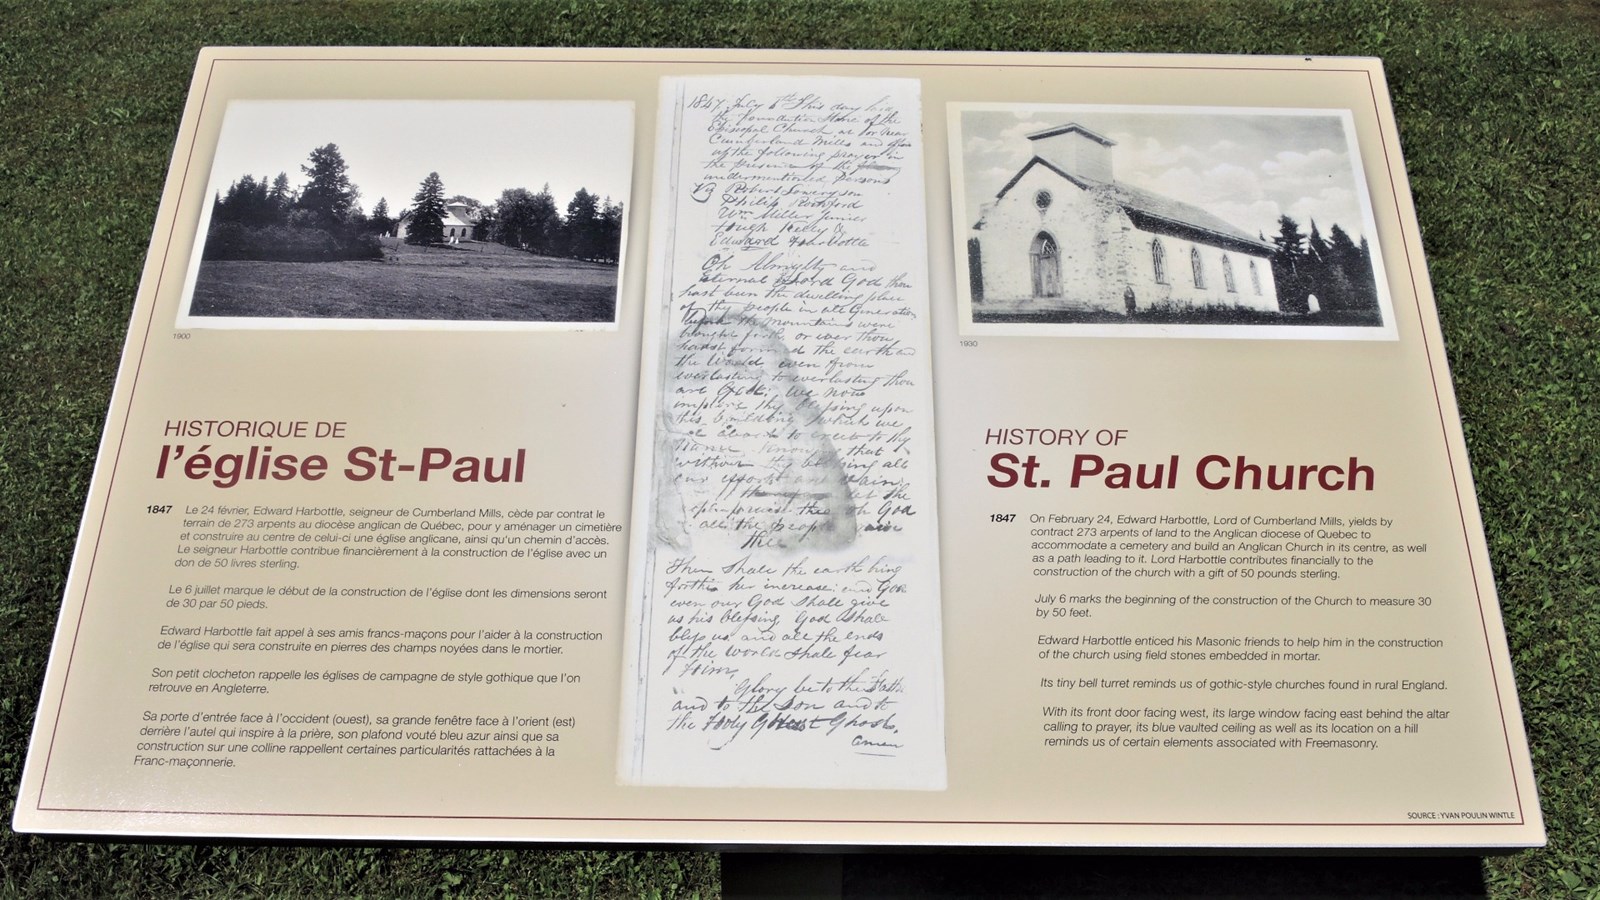 1900
HISTORIQUE DE
l'église St-Paul
1847 Le 24 février, Edward Harbottle, seigneur de Cumberland Mills, cède par contrat le
terrain de 273 arpents au diocèse anglican de Québec, pour y aménager un cimetière
et construire au centre de celui-ci une église anglicane, ainsi qu'un chemin d'accès.
Le seigneur Harbottle contribue financièrement à la construction de l'église avec un
don de 50 livres sterling.
Le 6 juillet marque le début de la construction de l'église dont les dimensions seront
de 30 par 50 pieds.
Edward Harbottle fait appel à ses amis francs-maçons pour l'aider à la construction
de l'église qui sera construite en pierres des champs noyées dans le mortier.
Son petit clocheton rappelle les églises de campagne de style gothique que l'on
retrouve en Angleterre.
Sa porte d'entrée face à l'occident (ouest), sa grande fenêtre face à l'orient (est)
derrière l'autel qui inspire à la prière, son plafond vouté bleu azur ainsi que sa
construction sur une colline rappellent certaines particularités rattachées à la
Franc-maçonnerie.
1847 July 6th This day laid
the foundation Stone of the
Episcopal Church at or near
Cumberland Mills and
up the following prayer in
the presence of the
undermentioned persons
Vz Robert
Philip
Wm Miller Junior
Hough Kelly &
Edward Harbottle
Oh Almighty and
eternal Lord God thou
hast been the dwelling place
of thy people in all Generation
before the mountains were
brought forth or ever thou
hadst formed the earth and
the World even from
everlasting to everlasting thou
art God. We now
implore thy blessing upon
this building which we
are about to erect to thy
Name know that
without thy blessing all
our efforts are vain
let the
people praise thee oh God
all the people praise
thee
Then shall the earth bring
forth her increase and God
even our God shall give
us his blessing God shall
bless us and all the ends
of the world shall fear
him,
Glory be to the Father
and to the Son and to
the Holy Ghost.
Amen
1930
HISTORY OF
St. Paul Church
1847 On February 24, Edward Harbottle, Lord of Cumberland Mills, yields by
contract 273 arpents of land to the Anglican diocese of Quebec to
accommodate a cemetery and build an Anglican Church in its centre, as well
as a path leading to it. Lord Harbottle contributes financially to the
construction of the church with a gift of 50 pounds sterling.
July 6 marks the beginning of the construction of the Church to measure 30
by 50 feet.
Edward Harbottle enticed his Masonic friends to help him in the construction
of the church using field stones embedded in mortar.
Its tiny bell turret reminds us of gothic-style churches found in rural England.
With its front door facing west, its large window facing east behind the altar
calling to prayer, its blue vaulted ceiling as well as its location on a hill
reminds us of certain elements associated with Freemasonry.
SOURCE : YVAN POULIN WINTLE